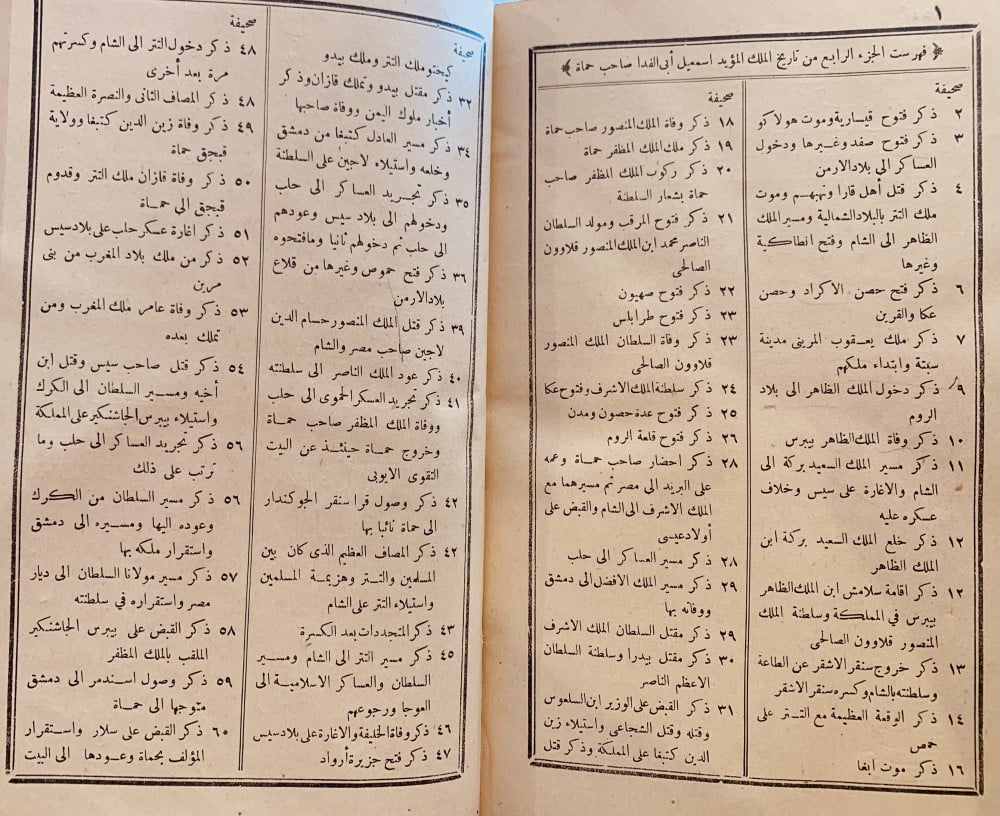 ١
﴿ فهرست الجزء الرابع من تاريخ الملك المؤيد اسمعيل أبى الفدا صاحب حماة ﴾
صحيفة
٢ ذكر فتوح قيسارية وموت هولاكو
٣ ذكر فتوح صفد وغيرها ودخول
العساكر الى بلاد الارمن
٤ ذكر قتل أهل قارا ونهبهم وموت
ملك التتر بالبلاد الشمالية ومسير الملك
الظاهر الى الشام وفتح انطاكية
وغيرها
٦ ذكر فتح حصن الاكراد وحصن
عكا والقرين
٧ ذكر ملك يعقوب المرينى مدينة
سبتة وابتداء ملكهم
٩ ذكر دخول الملك الظاهر الى بلاد
الروم
١٠ ذكر وفاة الملك الظاهر بيبرس
١١ ذكر مسير الملك السعيد بركة الى
الشام والاغارة على سيس وخلاف
عسكره عليه
١٢ ذكر خلع الملك السعيد بركة ابن
الملك الظاهر
١٢ ذكر اقامة سلامش ابن الملك الظاهر
بيبرس فى المملكة وسلطنة الملك
المنصور قلاوون الصالحى
١٣ ذكر خروج سنقر الاشقر عن الطاعة
وسلطنته بالشام وكسره سنقر الاشقر
١٤ ذكر الوقعة العظيمة مع التتر على
حمص
١٦ ذكر موت أبغا
صحيفة
١٨ ذكر وفاة الملك المنصور صاحب حماة
١٩ ذكر ملك الملك المظفر حماة
٢٠ ذكر ركوب الملك المظفر صاحب
حماة بشعار السلطنة
٢١ ذكر فتوح المرقب ومولد السلطان
الناصر محمد ابن الملك المنصور قلاوون
الصالحى
٢٢ ذكر فتوح صهيون
٢٣ ذكر فتوح طرابلس
٢٣ ذكر وفاة السلطان الملك المنصور
قلاوون الصالحى
٢٤ ذكر سلطنة الملك الاشرف وفتوح عكا
٢٥ ذكر فتوح عدة حصون ومدن
٢٦ ذكر فتوح قلعة الروم
٢٨ ذكر احضار صاحب حماة وعمه
على البريد الى مصر ثم مسيرهما مع
الملك الاشرف الى الشام والقبض على
أولاد عيسى
٢٨ ذكر مسير العساكر الى حلب
٢٩ ذكر مسير الملك الافضل الى دمشق
ووفاته بها
٢٩ ذكر مقتل السلطان الملك الاشرف
٣٠ ذكر مقتل بيدرا وسلطنة السلطان
الاعظم الناصر
٣١ ذكر القبض على الوزير ابن السلعوس
وقتله وقتل الشجاعى واستيلاء زين
الدين كتبغا على المملكة وذكر قتل
صحيفة
كيختو ملك التتر وملك بيدو
٣٢ ذكر مقتل بيدو وتملك قازان وذكر
أخبار ملوك اليمن ووفاة صاحبها
٣٤ ذكر مسير العادل كتبغا من دمشق
وخلعه واستيلاء لاجين على السلطنة
٣٥ ذكر تجريد العساكر الى حلب
ودخولهم الى بلاد سيس وعودهم
الى حلب ثم دخولهم ثانيا وما فتحوه
٣٦ ذكر فتح حموص وغيرها من قلاع
بلاد الارمن
٣٩ ذكر قتل الملك المنصور حسام الدين
لاجين صاحب مصر والشام
٤٠ ذكر عود الملك الناصر الى سلطنته
٤١ ذكر تجريد العسكر الحموى الى حلب
ووفاة الملك المظفر صاحب حماة
وخروج حماة حينئذ عن البيت
التقوى الايوبى
٤٢ ذكر وصول قرا سنقر الجوكندار
الى حماة نائبا بها
٤٢ ذكر المصاف العظيم الذى كان بين
المسلمين والتتر وهزيمة المسلمين
واستيلاء التتر على الشام
٤٣ ذكر المتجددات بعد الكسرة
٤٥ ذكر مسير التتر الى الشام ومسير
السلطان والعساكر الاسلامية الى
العوجا ورجوعهم
٤٦ ذكر وفاة الخليفة والاغارة على بلاد سيس
٤٧ ذكر فتح جزيرة أرواد
صحيفة
٤٨ ذكر دخول التتر الى الشام وكسرتهم
مرة بعد أخرى
٤٨ ذكر المصاف الثانى والنصرة العظيمة
٤٩ ذكر وفاة زين الدين كتبغا وولاية
قبجق حماة
٥٠ ذكر وفاة قازان ملك التتر وقدوم
قبجق الى حماة
٥١ ذكر اغارة عسكر حلب على بلاد سيس
٥٢ ذكر من ملك بلاد المغرب من بنى
مرين
٥٣ ذكر وفاة عامر ملك المغرب ومن
تملك بعده
٥٤ ذكر قتل صاحب سيس وقتل ابن
أخيه ومسير السلطان الى الكرك
واستيلاء بيبرس الجاشنكير على المملكة
٥٦ ذكر تجريد العساكر الى حلب وما
ترتب على ذلك
٥٦ ذكر مسير السلطان من الكرك
وعوده اليها ومسيره الى دمشق
واستقرار ملكه بها
٥٧ ذكر مسير مولانا السلطان الى ديار
مصر واستقراره فى سلطنته
٥٨ ذكر القبض على بيبرس الجاشنكير
الملقب بالملك المظفر
٥٩ ذكر وصول اسندمر الى دمشق
متوجها الى حماة
٦٠ ذكر القبض على سلار واستقرار
المؤلف بحماة وعودها الى البيت